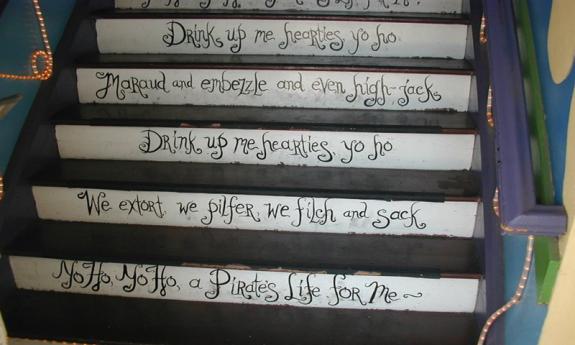 Drink up me hearties yo ho
Maraud and embezzle and even high-jack
Drink up me hearties, yo ho
We extort, we pilfer, we filch and sack
Yo Ho, Yo Ho, a Pirate's Life for Me~